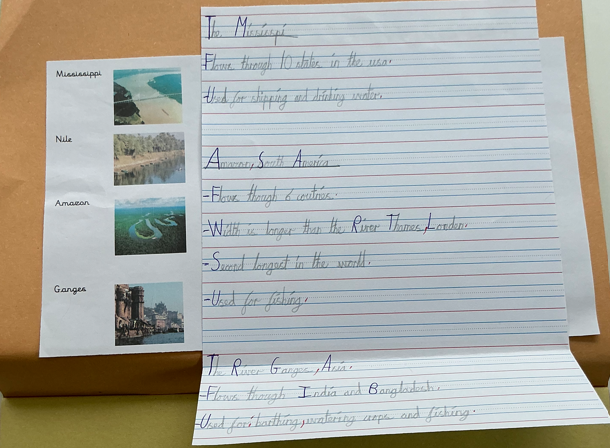 Mississippi
Nile
Amazon
Ganges
The Mississpi
Flows through 10 states in the usa.
Used for shipping and drinking water.
Amazon, South America
-Flows though 6 coutries.
-Width is longer than the River Thames, London.
-Second longest in the world.
-Used for fishing.
The River Ganges, Asia.
-Flows though India and Bangladesh.
-Used for: barthing, watering crops and fishing.